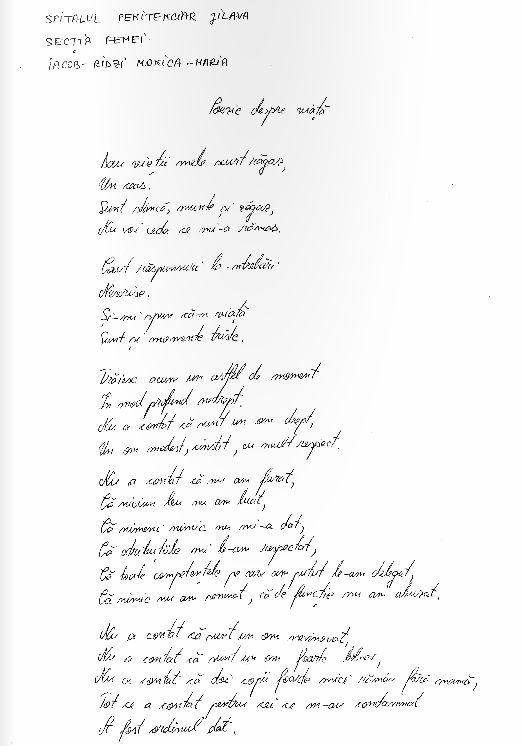 SPITALUL PENITENCIAR JILAVA
SECȚIA FEMEI
IACOB-RIDZI MONICA-MARIA
Poezie despre viață
Dau vieții mele scurt răgaz,
Un ceas.
Sunt stâncă, munte și zăgaz,
Nu voi ceda ce mi-a rămas.
Caut răspunsuri la-ntrebări
Nescrise.
Și-mi spun că-n viață
Sunt și momente triste.
Trăiesc acum un astfel de moment
În mod profund nedrept.
Nu a contat că sunt un om drept,
Un om modest, cinstit, cu mult respect.
Nu a contat că nu am furat,
Că niciun leu nu am luat,
Că nimeni nimic nu mi-a dat,
Că atribuțiile mi le-am respectat,
Că toate competențele pe care am putut le-am delegat,
Că nimic nu am semnat, că de funcție nu am abuzat.
Nu a contat că sunt un om nevinovat,
Nu a contat că sunt un om foarte bolnav,
Nu a contat că doi copii foarte mici rămân fără mamă,
Tot ce a contat pentru cei ce m-au condamnat
A fost ordinul dat.